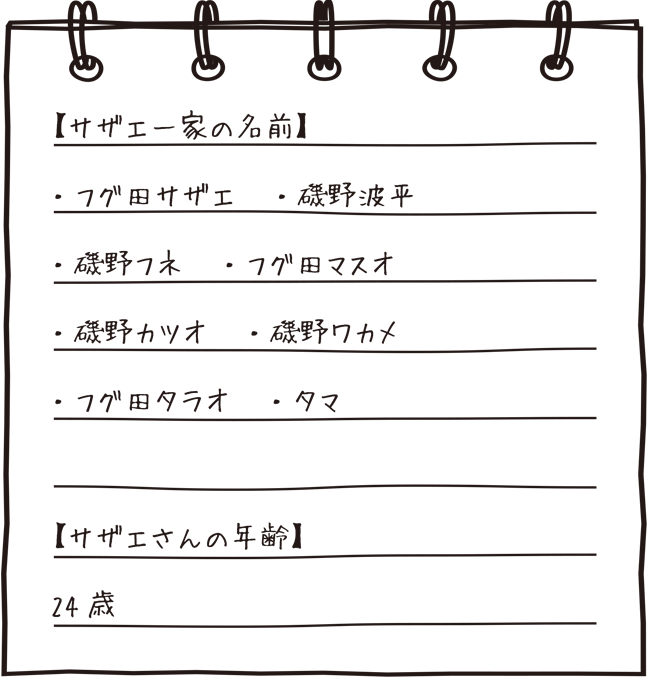 【サザエ一家の名前】
・フグ田サザエ　・磯野波平
・磯野フネ　・フグ田マスオ
・磯野カツオ　・磯野ワカメ
・フグ田タラオ　・タマ
【サザエさんの年齢】
24歳